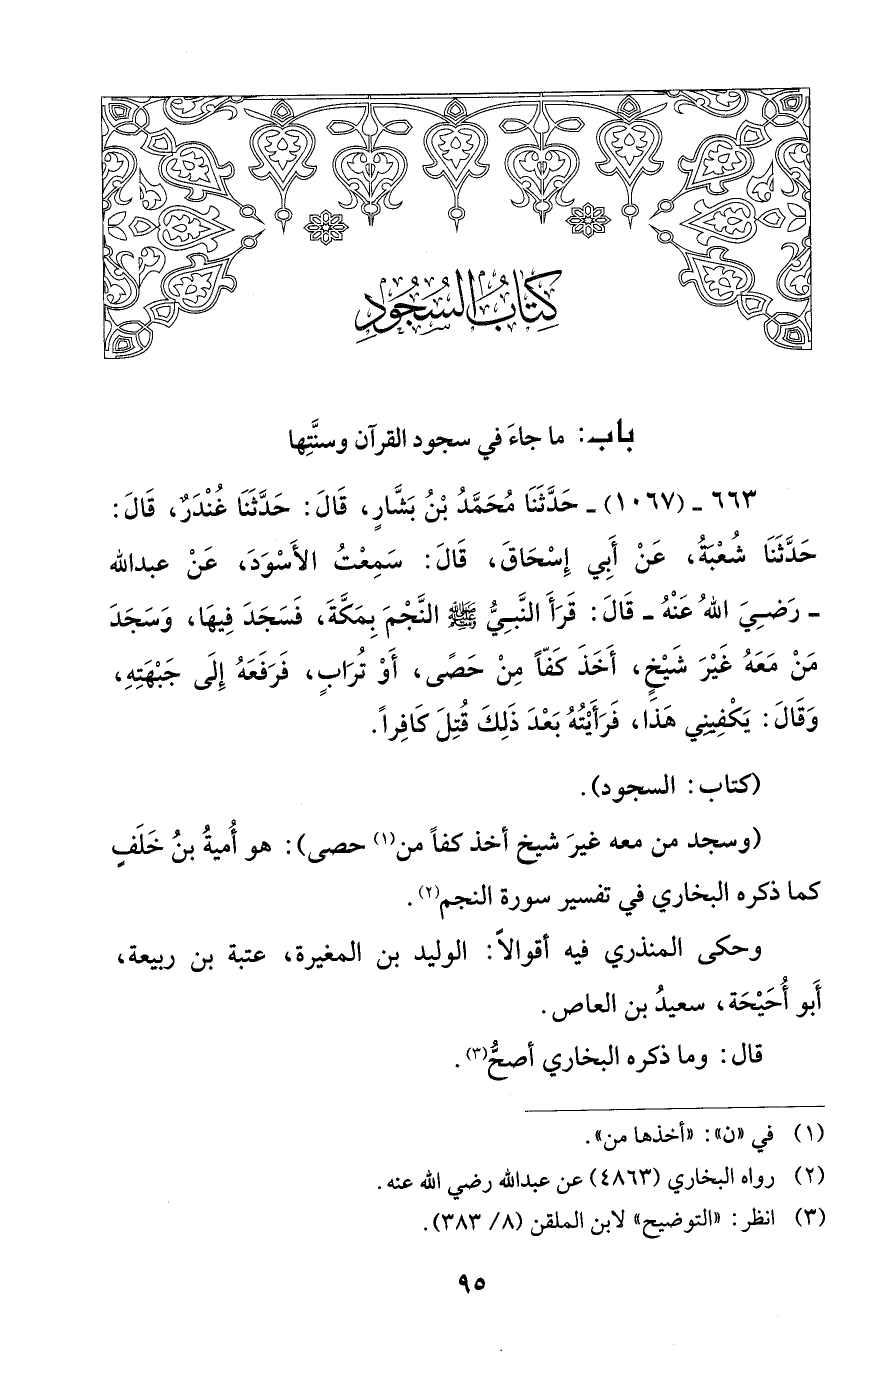 كِتَابُ السُّجُودِ
باب: ما جاءَ في سجود القرآن وسنَّتِها
٦٦٣ ـ (١٠٦٧) ـ حَدَّثَنَا مُحَمَّدُ بْنُ بَشَّارٍ، قَالَ: حَدَّثَنَا غُنْدَرٌ، قَالَ:
حَدَّثَنَا شُعْبَةُ، عَنْ أَبِي إِسْحَاقَ، قَالَ: سَمِعْتُ الأَسْوَدَ، عَنْ عبدالله
ـ رَضيَ اللهُ عَنْهُ ـ قَالَ: قَرَأَ النَّبِيُّ ﷺ النَّجْمَ بِمَكَّةَ، فَسَجَدَ فِيهَا، وَسَجَدَ
مَنْ مَعَهُ غَيْرَ شَيْخٍ، أَخَذَ كَفّاً مِنْ حَصًى، أَوْ تُرَابٍ، فَرَفَعَهُ إِلَى جَبْهَتِهِ،
وَقَالَ: يَكْفِينِي هَذَا، فَرَأَيْتُهُ بَعْدَ ذَلِكَ قُتِلَ كَافِراً.
(كتاب: السجود).
(وسجد من معه غيرَ شيخ أخذ كفاً من(١) حصى): هو أُميةُ بنُ خَلَفٍ
كما ذكره البخاري في تفسير سورة النجم(٢).
وحكى المنذري فيه أقوالاً: الوليد بن المغيرة، عتبة بن ربيعة،
أَبو أُحَيْحَة، سعيدُ بن العاص.
قال: وما ذكره البخاري أصحُّ(٣).
(١) في «ن»: «أخذها من».
(٢) رواه البخاري (٤٨٦٣) عن عبدالله رضي الله عنه.
(٣) انظر: «التوضيح» لابن الملقن (٨/ ٣٨٣).
٩٥